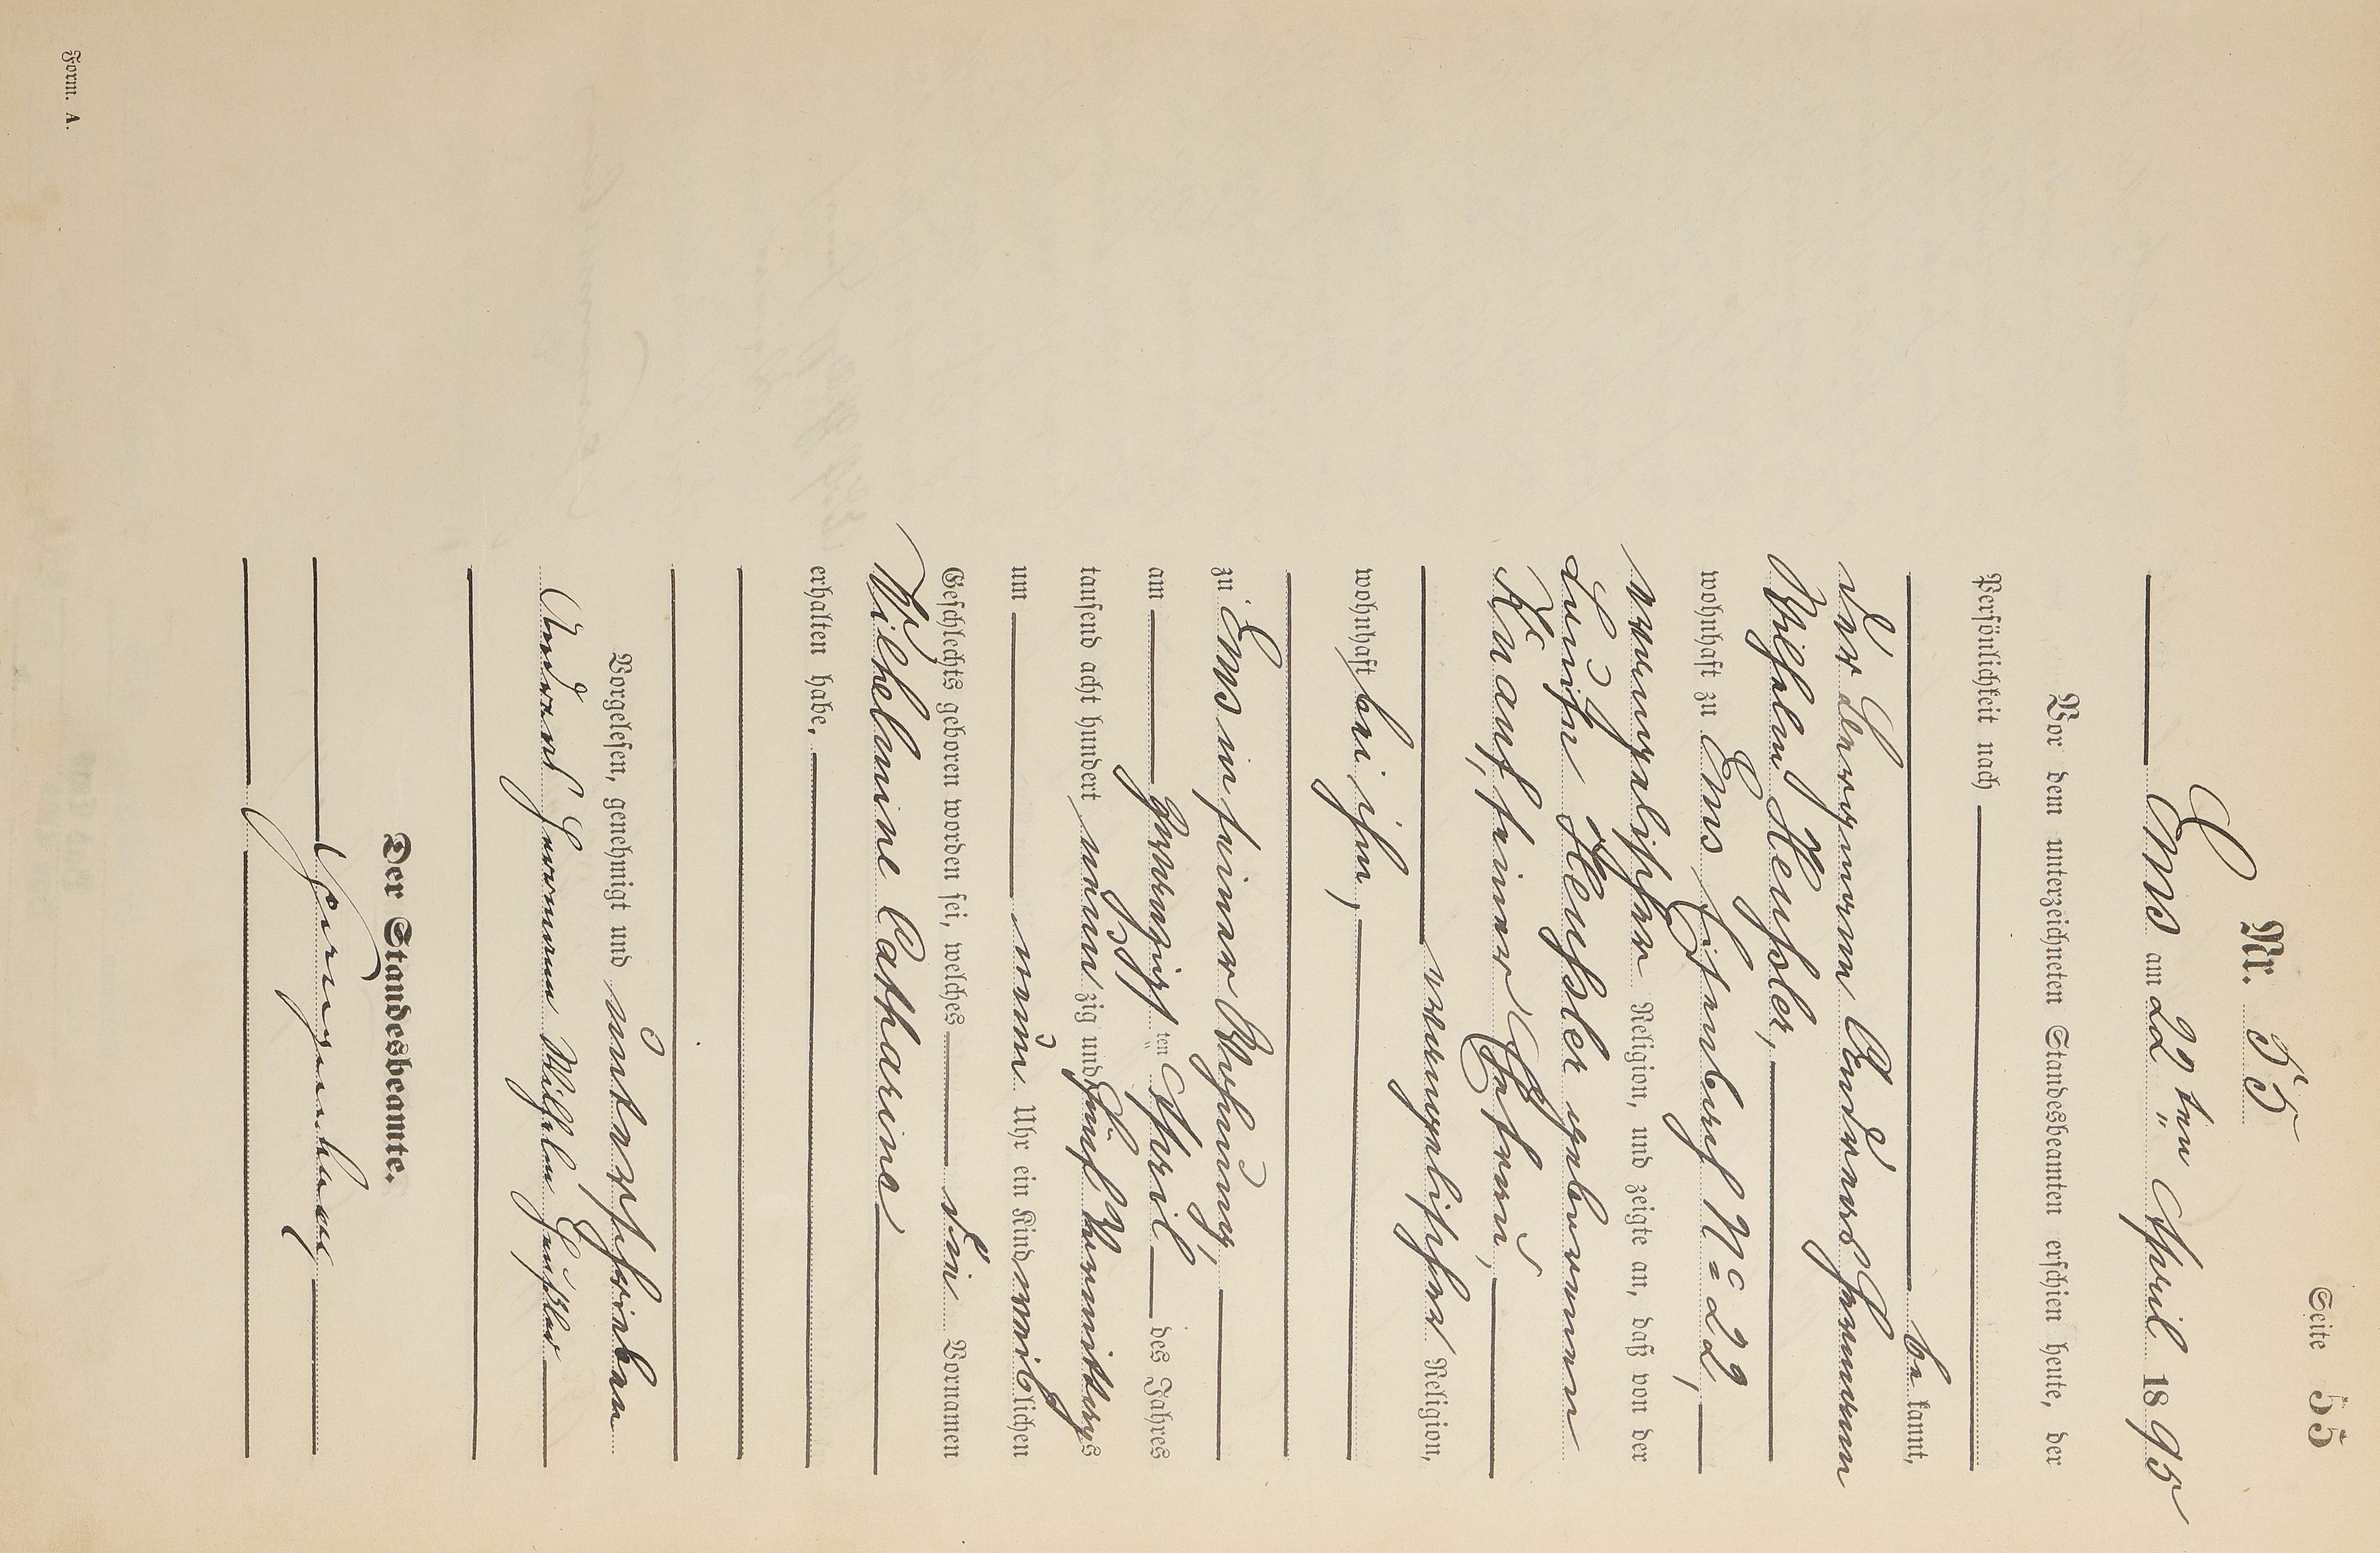 Seite 55
Nr. 55
Ems am 22ten April 1895
Vor dem unterzeichneten Standesbeamten erschien heute, der
Persönlichkeit nach
be kannt,
der Bergmann Andreas Hermann
Wilhelm Heußler,
wohnhaft zu Ems, Eisenbach No 22,
evangelischer Religion, und zeigte an, daß von der
Luise Heußler geborenen
Knauf, seiner Ehefrau,
evangelischer Religion,
wohnhaft bei ihm,
zu Ems in seiner Wohnung,
am zwanzigsten April des Jahres
tausend acht hundert neunzig und fünf Vormittags
um neun Uhr ein Kind weiblichen
Geschlechts geboren worden sei, welches die Vornamen
Wilhelmine Catharine
erhalten habe.
Vorgelesen, genehmigt und unterschrieben
Andreas Hermann Wilhelm Heußler
Der Standesbeamte.
Form. A.